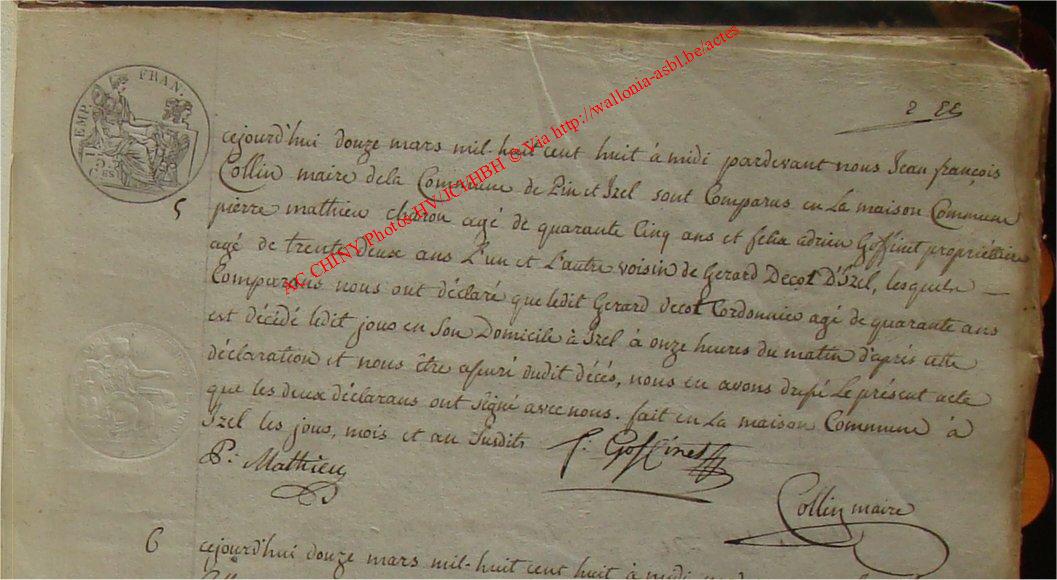 EMP. FRAN.
cejourd'hui douze mars mil-huit cent huit à midi pardevant nous Jean françois
Collin maire dela Commune de Pin et Izel sont Comparus en La maison Commune
5
pierre mathieu charon agé de quarante Cinq ans et felix adrien Goffinet propriétaire
agé de trente deux ans L'un et L'autre voisin de Gerard Decot D'Izel, lesquels
Comparans nous ont déclaré que ledit Gerard decot Cordonnier agé de quarante ans
est décédé ledit jour en Son Domicile à Izel à onze heures du matin d'après cette
déclaration et nous être assuré dudit décés, nous en avons dressé Le présent acte
que les deux déclarans ont signé avec nous. fait en La maison Commune à
Izel les jour, mois et an Susdits
P: Mathieu
f: Goffinet
Collin maire
6
cejourd'hui douze mars mil-huit cent huit à midi
AC CHINY Photos HV JCV HBH © Via http://wallonia-asbl.be/actes